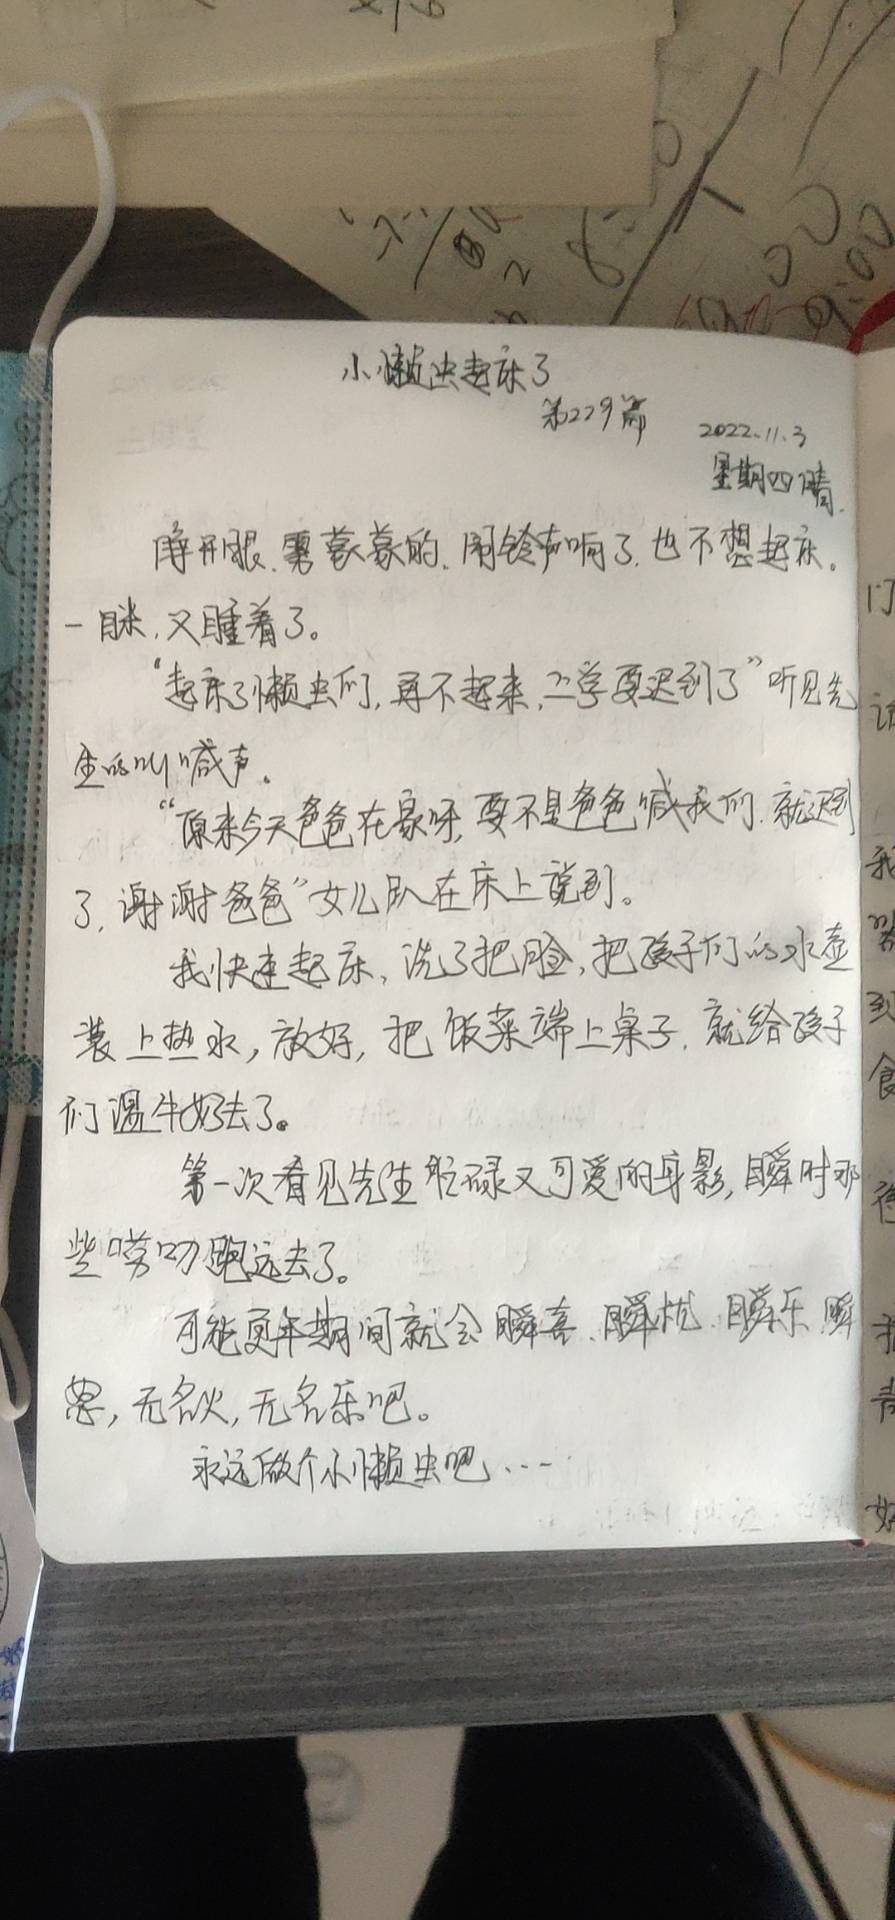 小懒虫起床了
第229篇
2022.11.3
星期四 晴.
睁开眼、雾蒙蒙的、闹铃声响了.也不想起床。
一眯,又睡着了。
“起床了懒虫们,再不起来,上学要迟到了”听见先
生的叫喊声。
“原来今天爸爸在家呀,要不是爸爸喊我们.就迟到
了,谢谢爸爸”女儿趴在床上说到。
我快速起床,洗了把脸,把孩子们的水壶
装上热水,放好,把饭菜端上桌子.就给孩子
们温牛奶去了。
第一次看见先生忙碌又可爱的身影,瞬时那
些唠叨跑远去了。
可能更年期间就会瞬喜、瞬忧、瞬乐、瞬
怒,无名火,无名乐吧。
永远做个小懒虫吧……